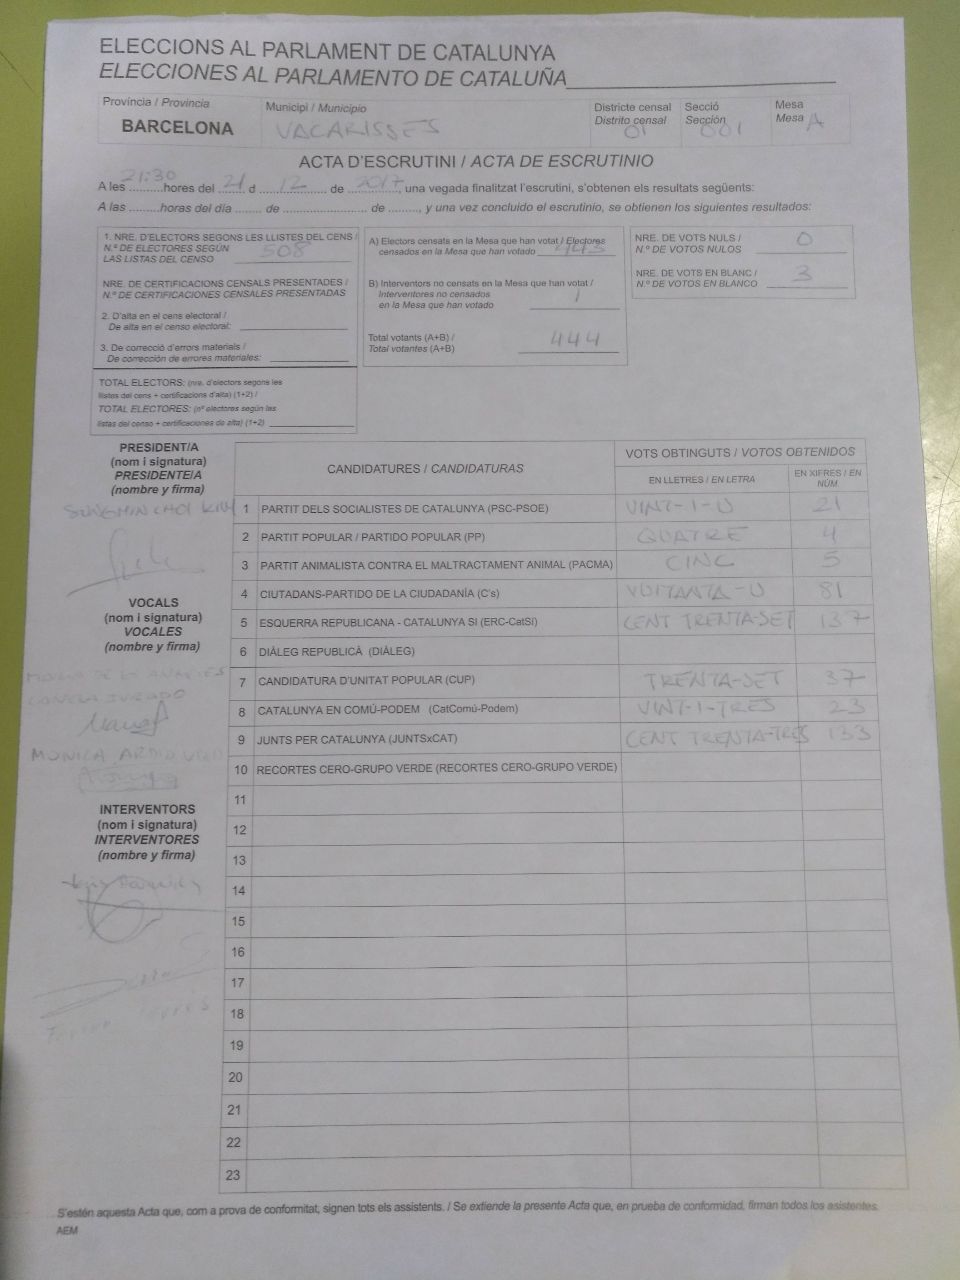 ELECCIONS AL PARLAMENT DE CATALUNYA
ELECCIONES AL PARLAMENTO DE CATALUÑA
Província / Provincia
BARCELONA
Municipi / Municipio
VACARISSES
Districte censal
Distrito censal
01
Secció
Sección
001
Mesa
Mesa A
ACTA D'ESCRUTINI / ACTA DE ESCRUTINIO
A les 21:30 hores del 21 d 12 de 2017, una vegada finalitzat l'escrutini, s'obtenen els resultats següents:
A las .........horas del día ........ de ........................ de ........., y una vez concluido el escrutinio, se obtienen los siguientes resultados:
1. NRE. D'ELECTORS SEGONS LES LLISTES DEL CENS /
N.º DE ELECTORES SEGÚN
LAS LISTAS DEL CENSO 508
NRE. DE CERTIFICACIONS CENSALS PRESENTADES /
N.º DE CERTIFICACIONES CENSALES PRESENTADAS
2. D'alta en el cens electoral /
De alta en el censo electoral:
3. De correcció d'errors materials /
De corrección de errores materiales:
TOTAL ELECTORS: (nre. d'electors segons les
llistes del cens + certificacions d'alta) (1+2) /
TOTAL ELECTORES: (nº electores según las
listas del censo + certificaciones de alta) (1+2)
A) Electors censats en la Mesa que han votat / Electores
censados en la Mesa que han votado 443
B) Interventors no censats en la Mesa que han votat /
Interventores no censados
en la Mesa que han votado 1
Total votants (A+B) /
Total votantes (A+B) 444
NRE. DE VOTS NULS /
N.º DE VOTOS NULOS 0
NRE. DE VOTS EN BLANC /
N.º DE VOTOS EN BLANCO 3
PRESIDENT/A
(nom i signatura)
PRESIDENTE/A
(nombre y firma)
SUNGMIN CHOI KIM
VOCALS
(nom i signatura)
VOCALES
(nombre y firma)
MONICA
INTERVENTORS
(nom i signatura)
INTERVENTORES
(nombre y firma)
CANDIDATURES / CANDIDATURAS
VOTS OBTINGUTS / VOTOS OBTENIDOS
EN LLETRES / EN LETRA
EN XIFRES / EN NÚM.
1 PARTIT DELS SOCIALISTES DE CATALUNYA (PSC-PSOE) VINT-I-U 21
2 PARTIT POPULAR / PARTIDO POPULAR (PP) QUATRE 4
3 PARTIT ANIMALISTA CONTRA EL MALTRACTAMENT ANIMAL (PACMA) CINC 5
4 CIUTADANS-PARTIDO DE LA CIUDADANÍA (C's) VUITANTA-U 81
5 ESQUERRA REPUBLICANA - CATALUNYA SI (ERC-CatSí) CENT TRENTA-SET 137
6 DIÀLEG REPUBLICÀ (DIÀLEG)
7 CANDIDATURA D'UNITAT POPULAR (CUP) TRENTA-SET 37
8 CATALUNYA EN COMÚ-PODEM (CatComú-Podem) VINT-I-TRES 23
9 JUNTS PER CATALUNYA (JUNTSxCAT) CENT TRENTA-TRES 133
10 RECORTES CERO-GRUPO VERDE (RECORTES CERO-GRUPO VERDE)
11
12
13
14
15
16
17
18
19
20
21
22
23
S'estén aquesta Acta que, com a prova de conformitat, signen tots els assistents. / Se extiende la presente Acta que, en prueba de conformidad, firman todos los asistentes.
AEM